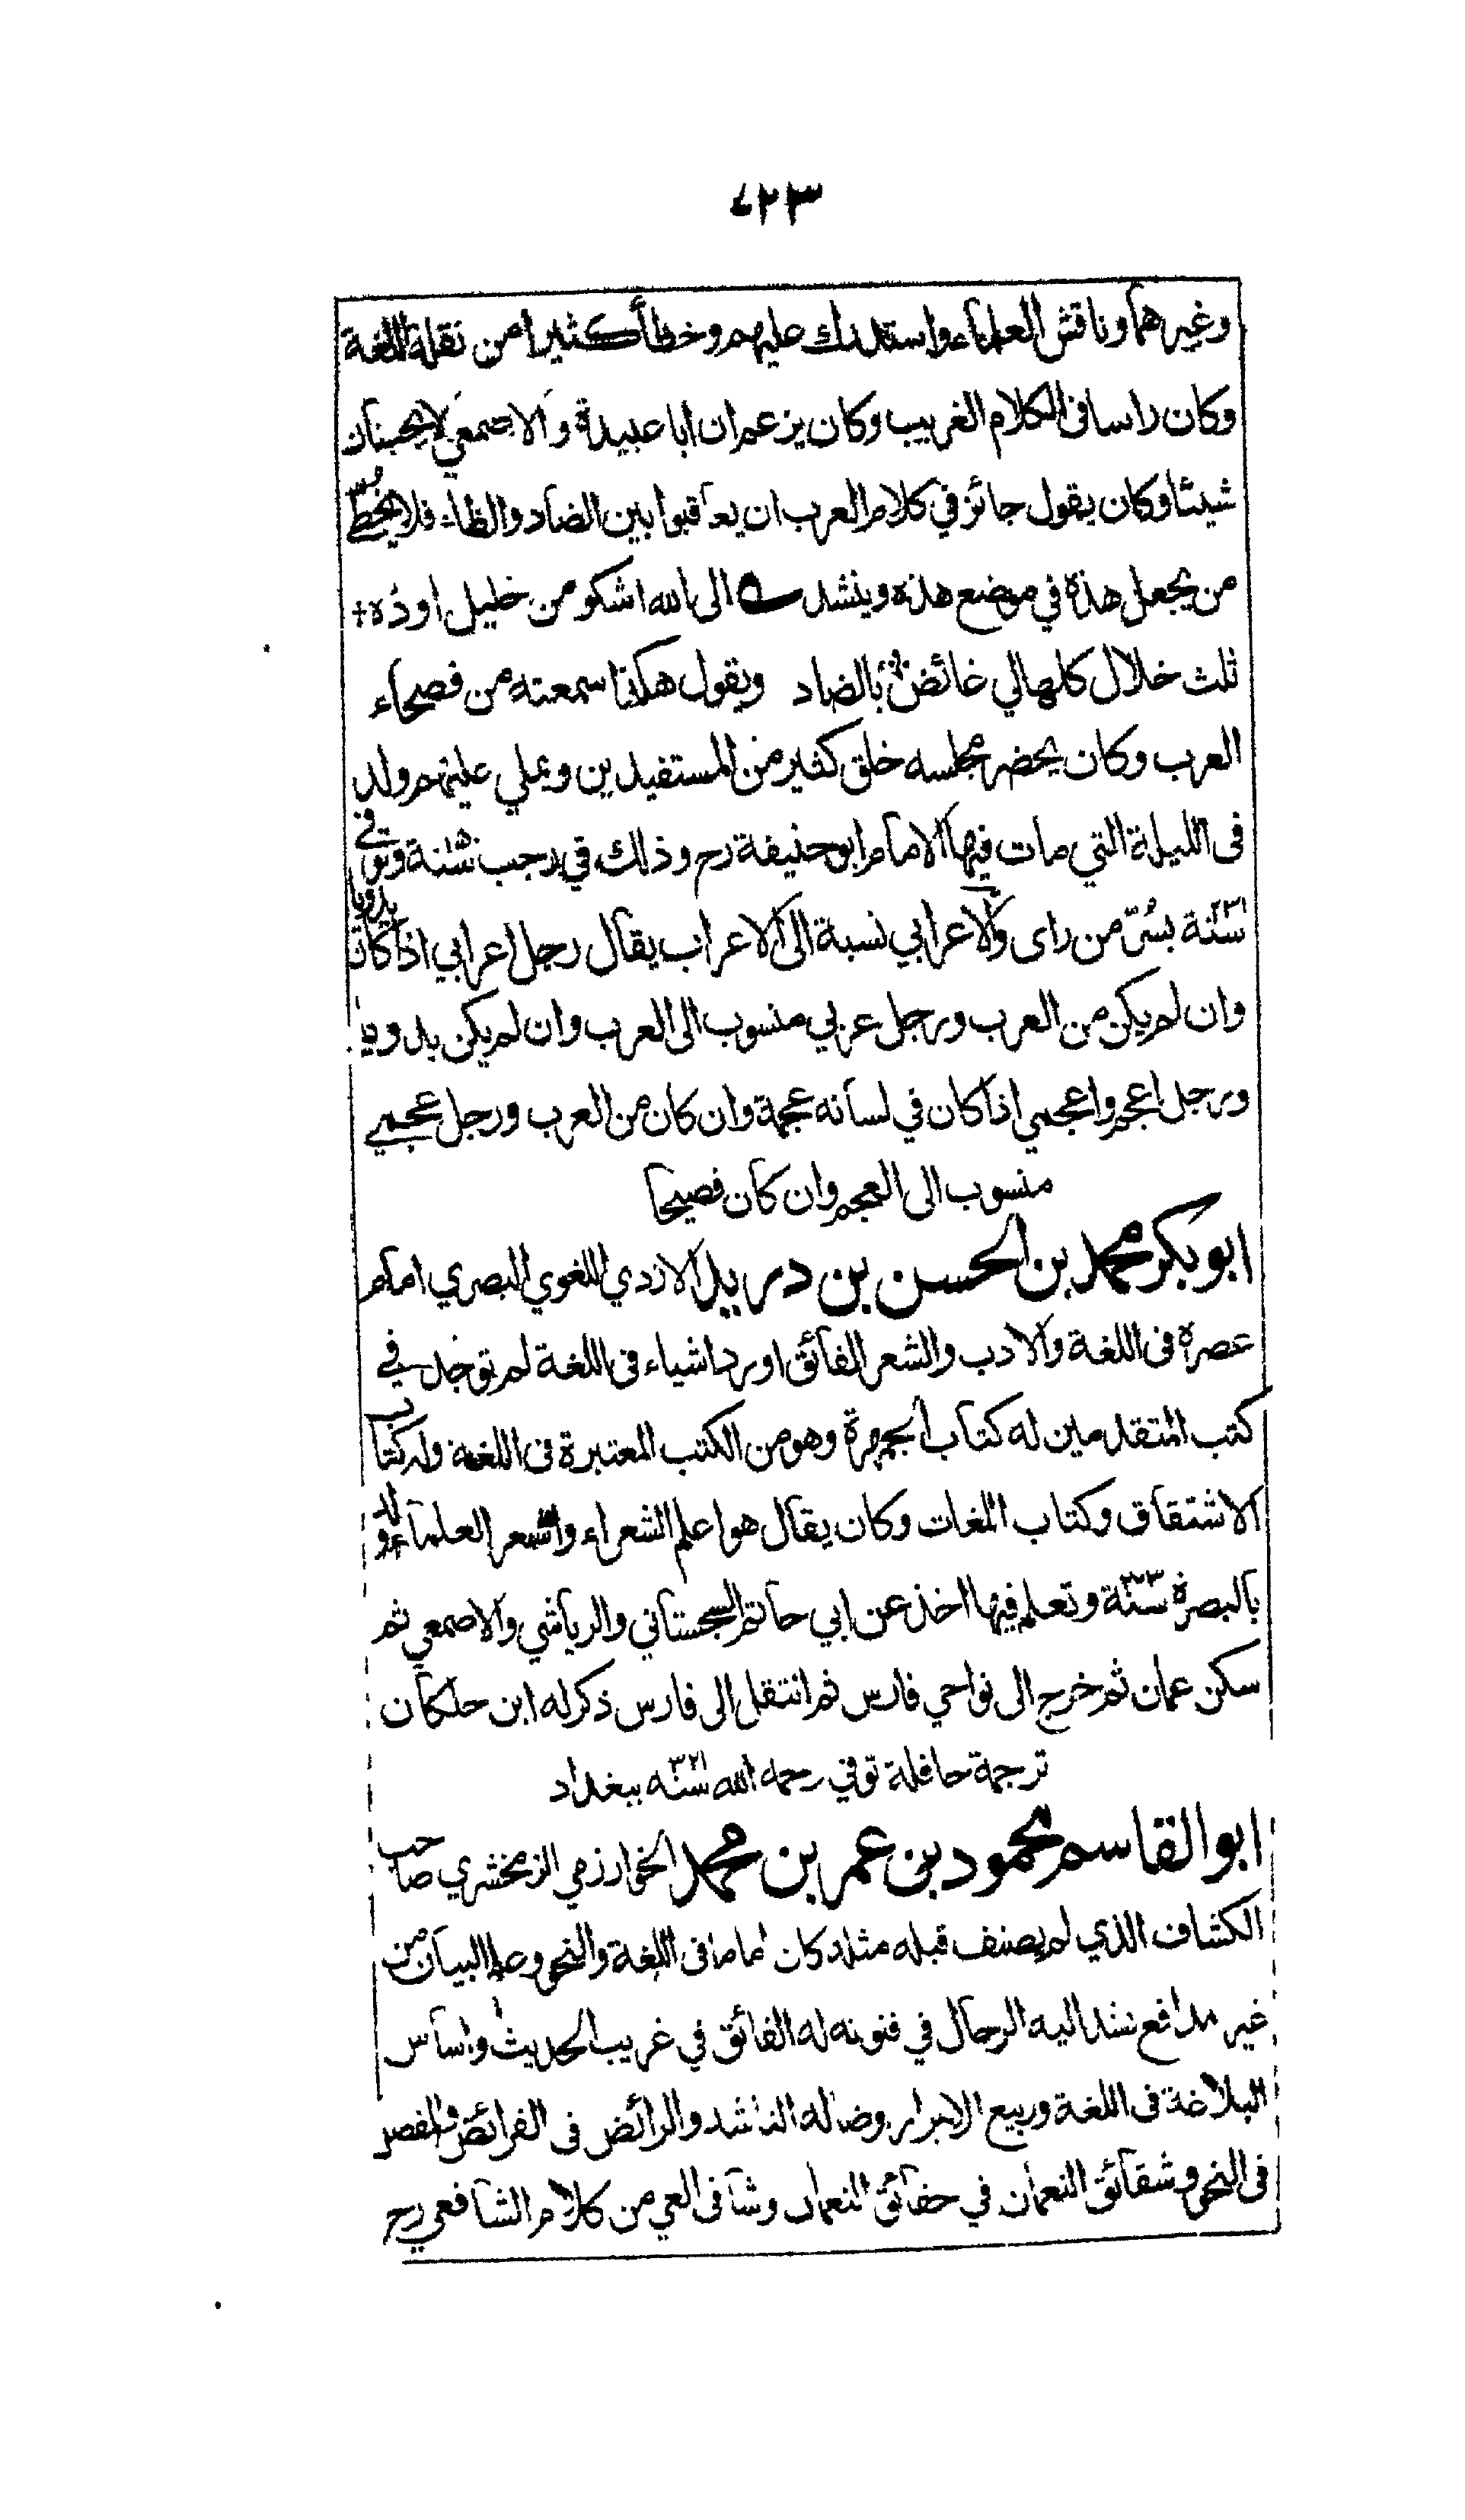 ٤٢٣
وغيرهما وناقش العلماء واستدرك عليهم وخطأ كثيرا من نقلة اللغة
وكان راسا فى الكلام الغريب وكان يزعم ان ابا عبيدة والاصمعي لا يحسنان
شيئا وكان يقول جائز في كلام العرب ان يعاقبوا بين الضاد والظاء فلا يخطئ
من يجعل هذه في موضع هذه وينشد الى الله اشكو من خليل اودّه +
ثلث خلال كلها لي غائض بالضاد ويقول هكذا سمعته من فصحاء
العرب وكان يحضر مجلسه خلق كثير من المستفيدين ويملي عليهم ولد
فى الليلة التي مات فيها الامام ابو حنيفة رح وذلك في رجب سنة وتوفي
سنة ٢٣١ بسُرّ من راى والاعرابي نسبة الى الاعراب يقال رجل اعرابي اذا كان بدويا
وان لم يكن من العرب ورجل عربي منسوب الى العرب وان لم يكن بدويا
ورجل اعجم واعجمي اذا كان في لسانه عجمة وان كان من العرب ورجل عجمي
منسوب الى العجم وان كان فصيحا
ابو بكر محمد بن الحسن بن دريد الازدي اللغوي البصري امام
عصره فى اللغة والادب والشعر الفائق اورد اشياء فى اللغة لم توجد في
كتب المتقدمين له كتاب الجمهرة وهو من الكتب المعتبرة فى اللغة وله كتاب
الاشتقاق وكتاب اللغات وكان يقال هو اعلم الشعراء واشعر العلماء ولد
بالبصرة سنة ٢٢٣ وتعلم فيها اخذ عن ابي حاتم السجستاني والرياشي والاصمعي ثم
سكن عمان ثم خرج الى نواحي فارس ثم انتقل الى فارس ذكر له ابن خلكان
ترجمة حافلة توفي رحمه الله سنة ٣٢١ ببغداد
ابو القاسم محمود بن عمر بن محمد الخوارزمي الزمخشري صاحب
الكشاف الذي لم يصنف قبله مثله كان اماما فى اللغة والنحو وعلم البيان من
غير مدافع تشد اليه الرحال في فنونه له الفائق في غريب الحديث واساس
البلاغة فى اللغة وربيع الابرار وضالة الناشد والرائض فى الفرائض والمفصل
فى النحو وشقائق النعمان في حقائق النعمان وشافى العي من كلام الشافعي رح